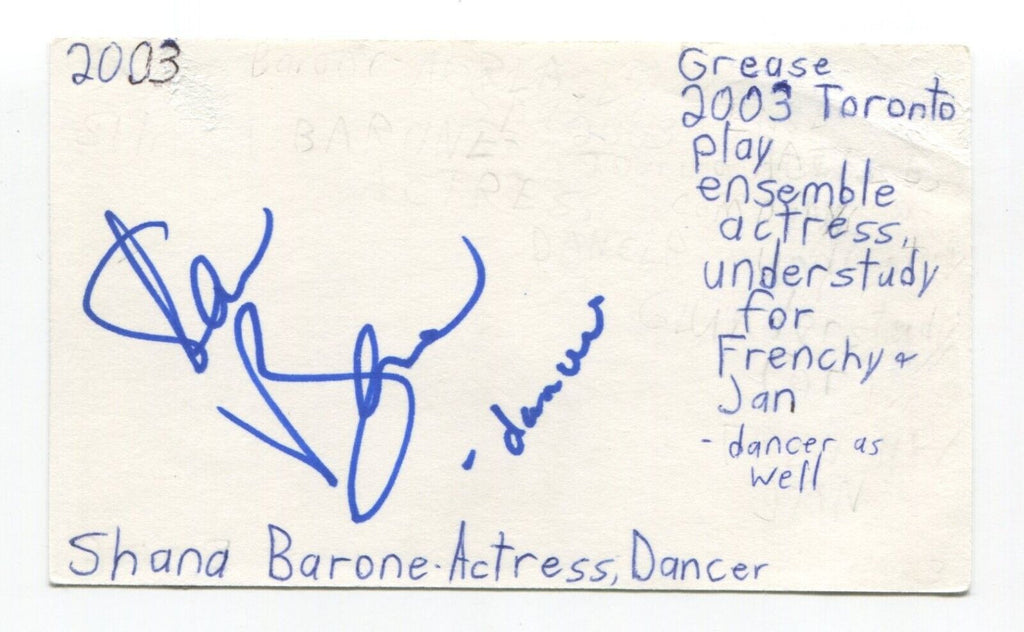 2003
Grease
2003 Toronto
play
ensemble
actress,
understudy
for
Frenchy &
Jan
- dancer as
well
- dancer
Shana Barone-Actress, Dancer